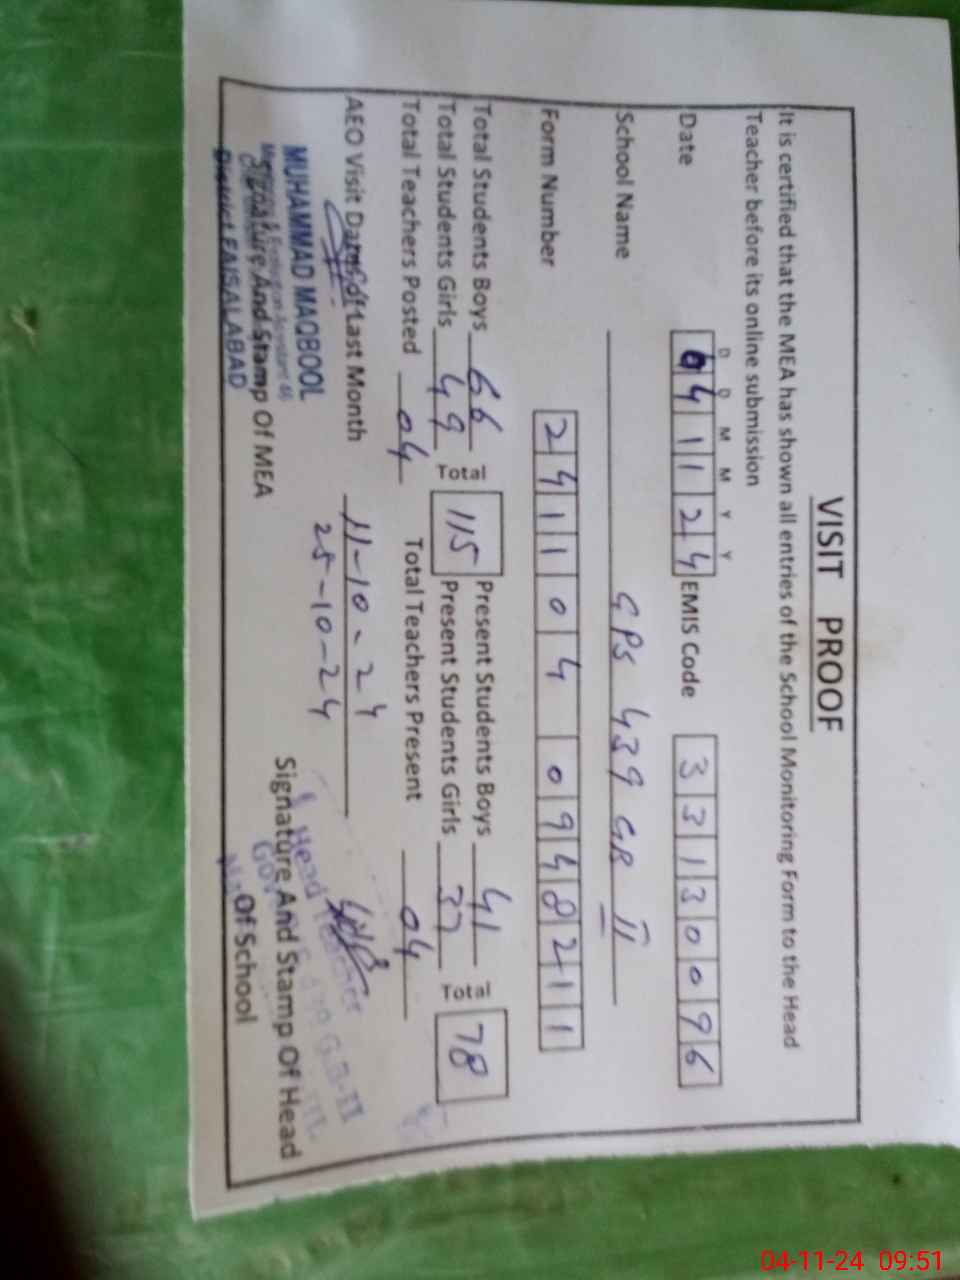 VISIT PROOF
It is certified that the MEA has shown all entries of the School Monitoring Form to the Head
Teacher before its online submission
D D M M Y Y
Date 041124 EMIS Code 33130096
School Name GPS 439 GB II
Form Number 241104 0948211
Total Students Boys 66 Total 115 Present Students Boys 41 Total 78
Total Students Girls 49 Present Students Girls 37
Total Teachers Posted 04 Total Teachers Present 04
AEO Visit Dates of Last Month 11-10-24
25-10-24
MUHAMMAD MAQBOOL
Signature And Stamp Of MEA
District FAISALABAD
Signature And Stamp Of Head
Head Teacher
G.B-II
Of School
04-11-24 09:51